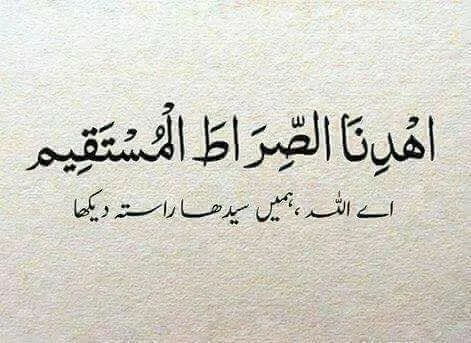 اهْدِنَا الصِّرَاطَ الْمُسْتَقِيم
اے اللہ ،ہمیں سیدھا راستہ دیکھا